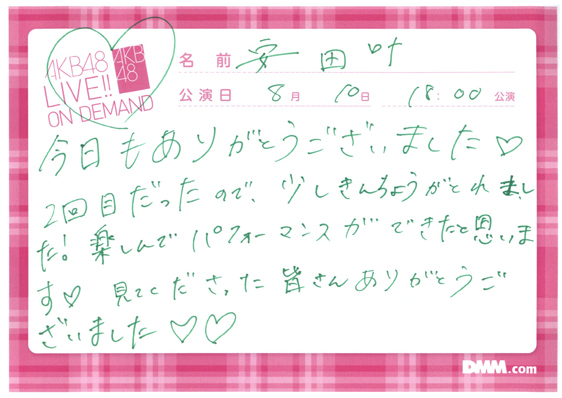 AKB48
LIVE!!
ON DEMAND
AKB
48
名前 安田叶
公演日 8月 10日 18:00 公演
今日もありがとうございました♡
2回目だったので、少しきんちょうがとれまし
た!楽しんでパフォーマンスができたと思いま
す♡ 見てくださった皆さんありがとうご
ざいました♡♡
DMM.com